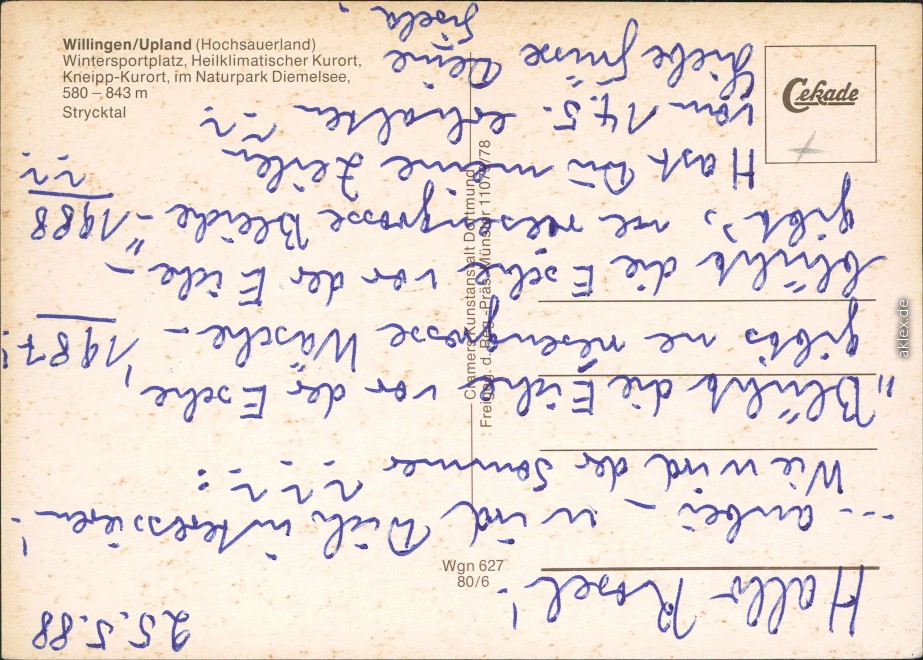 Willingen/Upland (Hochsauerland)
Wintersportplatz, Heilklimatischer Kurort,
Kneipp-Kurort, im Naturpark Diemelsee,
580 – 843 m
Strycktal
Cekade
Cramers Kunstanstalt Dortmund
Freigeg. d. Reg.-Präs. Münster 1107/78
Wgn 627
80/6
aklex.de
25.5.88
Hallo Rosel!
--- anbei – wird Dich interessieren!
Wie wird der Sommer
"Blüht die Eiche vor der Esche,
gibts ne riesengrosse Wäsche – 1987!
blüht die Esche vor der Eiche –
gibt's ne riesengrosse Bleiche" – 1988
Hast Du meine Zeilen
vom 14.5. erhalten
Liebe Grüsse Deine
Gisela